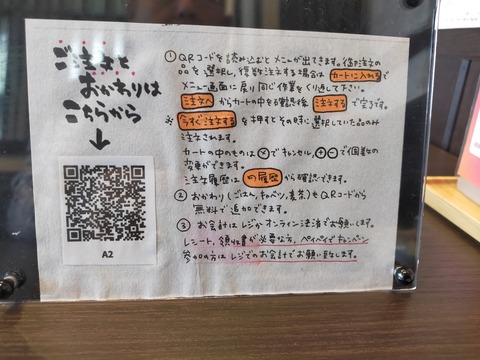 ご注文と
おかわりは
こちらから
↓
A2
① QRコードを読み込むとメニューが出てきます。御注文の
品を選択し、複数注文する場合は カートに入れる で
メニュー画面に戻り同じ作業をくり返して下さい。
注文へ からカートの中を確認後 注文する で完了です。
※ 今すぐ注文する を押すとその時に選択していた品のみ
注文されます。
カートの中のものは ⊗ でキャンセル、⊕⊖ で個数の
変更ができます。
注文履歴は の履歴 から確認できます。
② おかわり(ごはん、キャベツ、麦茶)もQRコードから
無料で追加できます。
③ お会計はレジかオンライン決済でお願いします。
レシート、領収書が必要な方、ペイペイでキャンペーン
参加の方はレジでのお会計でお願い致します。